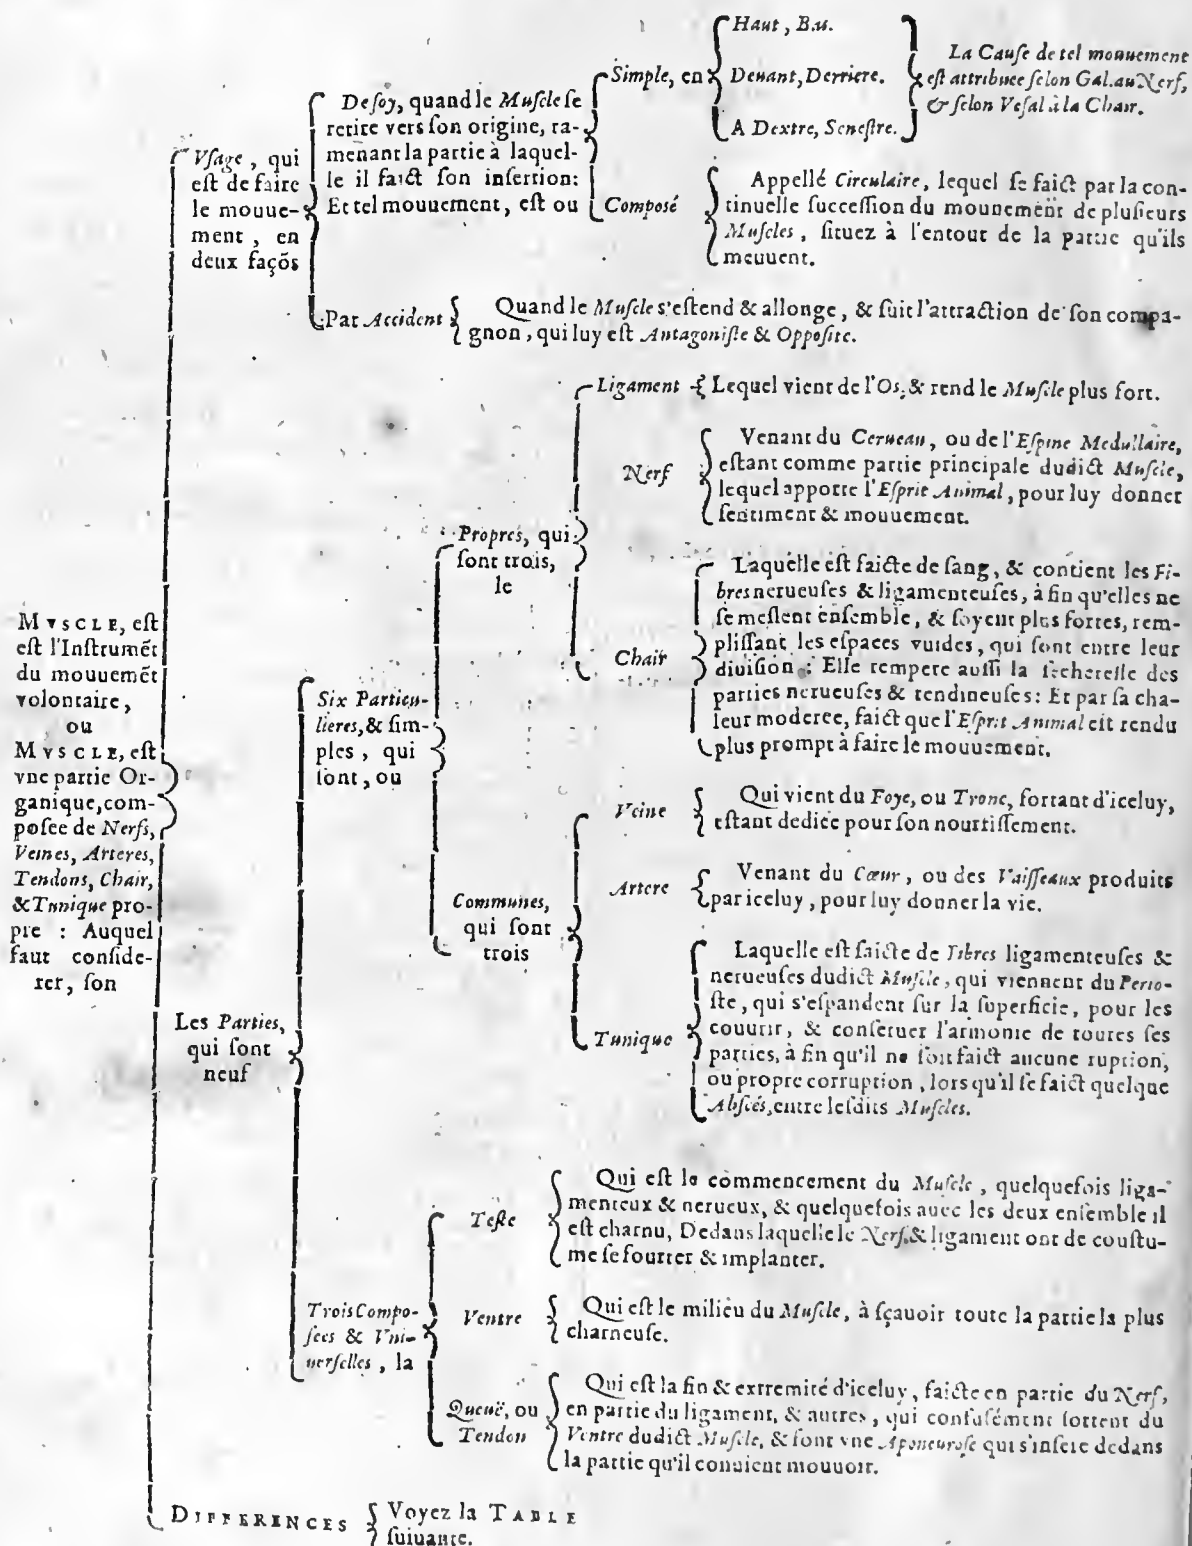 MVSCLE, est
est l'Instrumẽt
du mouuemẽt
volontaire,
ou
MVSCLE, est
vne partie Or-
ganique, com-
posee de Nerfs,
Veines, Arteres,
Tendons, Chair,
& Tunique pro-
pre : Auquel
faut conside-
rer, son
Vsage, qui
est de faire
le mouue-
ment, en
deux façõs
De soy, quand le Muscle se
retire vers son origine, ra-
menant la partie à laquel-
le il faict son insertion:
Et tel mouuement, est ou
Simple, en
Haut, Bas.
Deuant, Derriere.
A Dextre, Senestre.
La Cause de tel mouuement
est attribuee selon Gal. au Nerf,
& selon Vesal à la Chair.
Composé
Appellé Circulaire, lequel se faict par la con-
tinuelle succession du mouuement de plusieurs
Muscles, situez à l'entour de la partie qu'ils
meuuent.
Par Accident
Quand le Muscle s'estend & allonge, & suit l'attraction de son compa-
gnon, qui luy est Antagoniste & Opposite.
Les Parties,
qui sont
neuf
Six Particu-
lieres, & sim-
ples, qui
sont, ou
Propres, qui
sont trois,
le
Ligament
Lequel vient de l'Os, & rend le Muscle plus fort.
Nerf
Venant du Cerueau, ou de l'Espine Medullaire,
estant comme partie principale dudict Muscle,
lequel apporte l'Esprit Animal, pour luy donner
sentiment & mouuement.
Chair
Laquelle est faicte de sang, & contient les Fi-
bres nerueuses & ligamenteuses, à fin qu'elles ne
se meslent ensemble, & soyent plus fortes, rem-
plissant les espaces vuides, qui sont entre leur
diuision : Elle tempere aussi la secheresse des
parties nerueuses & tendineuses: Et par sa cha-
leur moderee, faict que l'Esprit Animal est rendu
plus prompt à faire le mouuement.
Communes,
qui sont
trois
Veine
Qui vient du Foye, ou Tronc, sortant d'iceluy,
estant dediée pour son nourrissement.
Artere
Venant du Cœur, ou des Vaisseaux produits
par iceluy, pour luy donner la vie.
Tunique
Laquelle est faicte de Fibres ligamenteuses &
nerueuses dudict Muscle, qui viennent du Perio-
ste, qui s'espandent sur la superficie, pour les
couurir, & conseruer l'armonie de toutes ses
parties, à fin qu'il ne soit faict aucune ruption,
ou propre corruption, lors qu'il se faict quelque
Abscés, entre lesdits Muscles.
Trois Compo-
sees & Vni-
uerselles, la
Teste
Qui est le commencement du Muscle, quelquefois liga-
menteux & nerueux, & quelquefois auec les deux ensemble il
est charnu, Dedans laquelle le Nerf, & ligament ont de coustu-
me se fourrer & implanter.
Ventre
Qui est le milieu du Muscle, à sçauoir toute la partie la plus
charneuse.
Queuë, ou
Tendon
Qui est la fin & extremité d'iceluy, faicte en partie du Nerf,
en partie du ligament, & autres, qui confusément sortent du
Ventre dudict Muscle, & font vne Aponeurose qui s'insere dedans
la partie qu'il conuient mouuoir.
DIFFERENCES
Voyez la TABLE
suiuante.